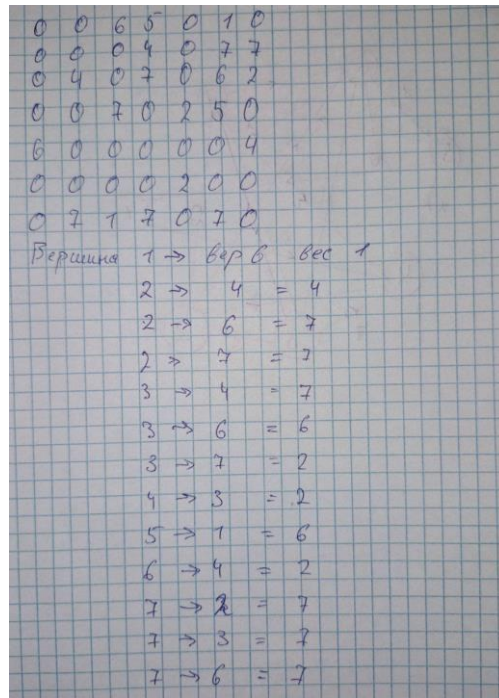 0 0 6 5 0 1 0
0 0 0 4 0 7 7
0 4 0 7 0 6 2
0 0 7 0 2 5 0
6 0 0 0 0 0 4
0 0 0 0 2 0 0
0 7 1 7 0 7 0
Вершина 1 → вер 6 вес 1
2 → 4 = 4
2 → 6 = 7
2 > 7 = 7
3 → 4 = 7
3 → 6 = 6
3 → 7 = 2
4 → 3 = 2
5 → 1 = 6
6 → 4 = 2
7 → 2 = 7
7 → 3 = 7
7 → 6 = 7